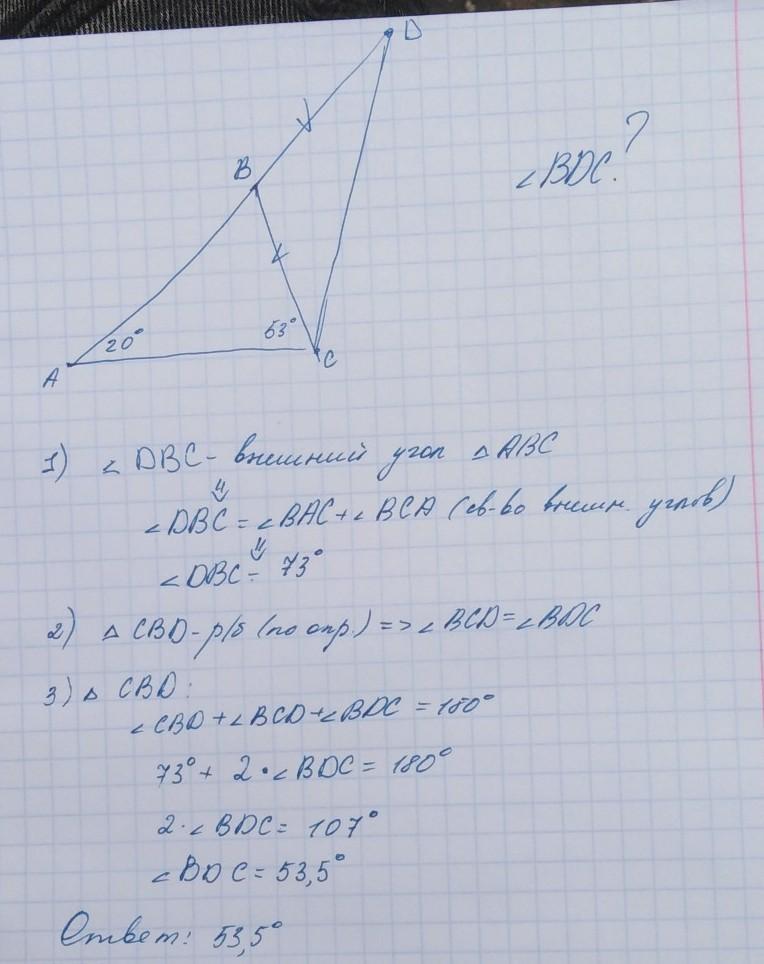 D
∠BDC?
B
20°
53°
A
C
1) ∠DBC - внешний угол △ABC
⇓
∠DBC = ∠BAC + ∠BCA (св-во внешн. углов)
⇓
∠DBC = 73°
2) △ CBD - р/б (по опр.) => ∠BCD = ∠BDC
3) △ CBD:
∠CBD + ∠BCD + ∠BDC = 180°
73° + 2·∠BDC = 180°
2·∠BDC = 107°
∠BDC = 53,5°
Ответ: 53,5°